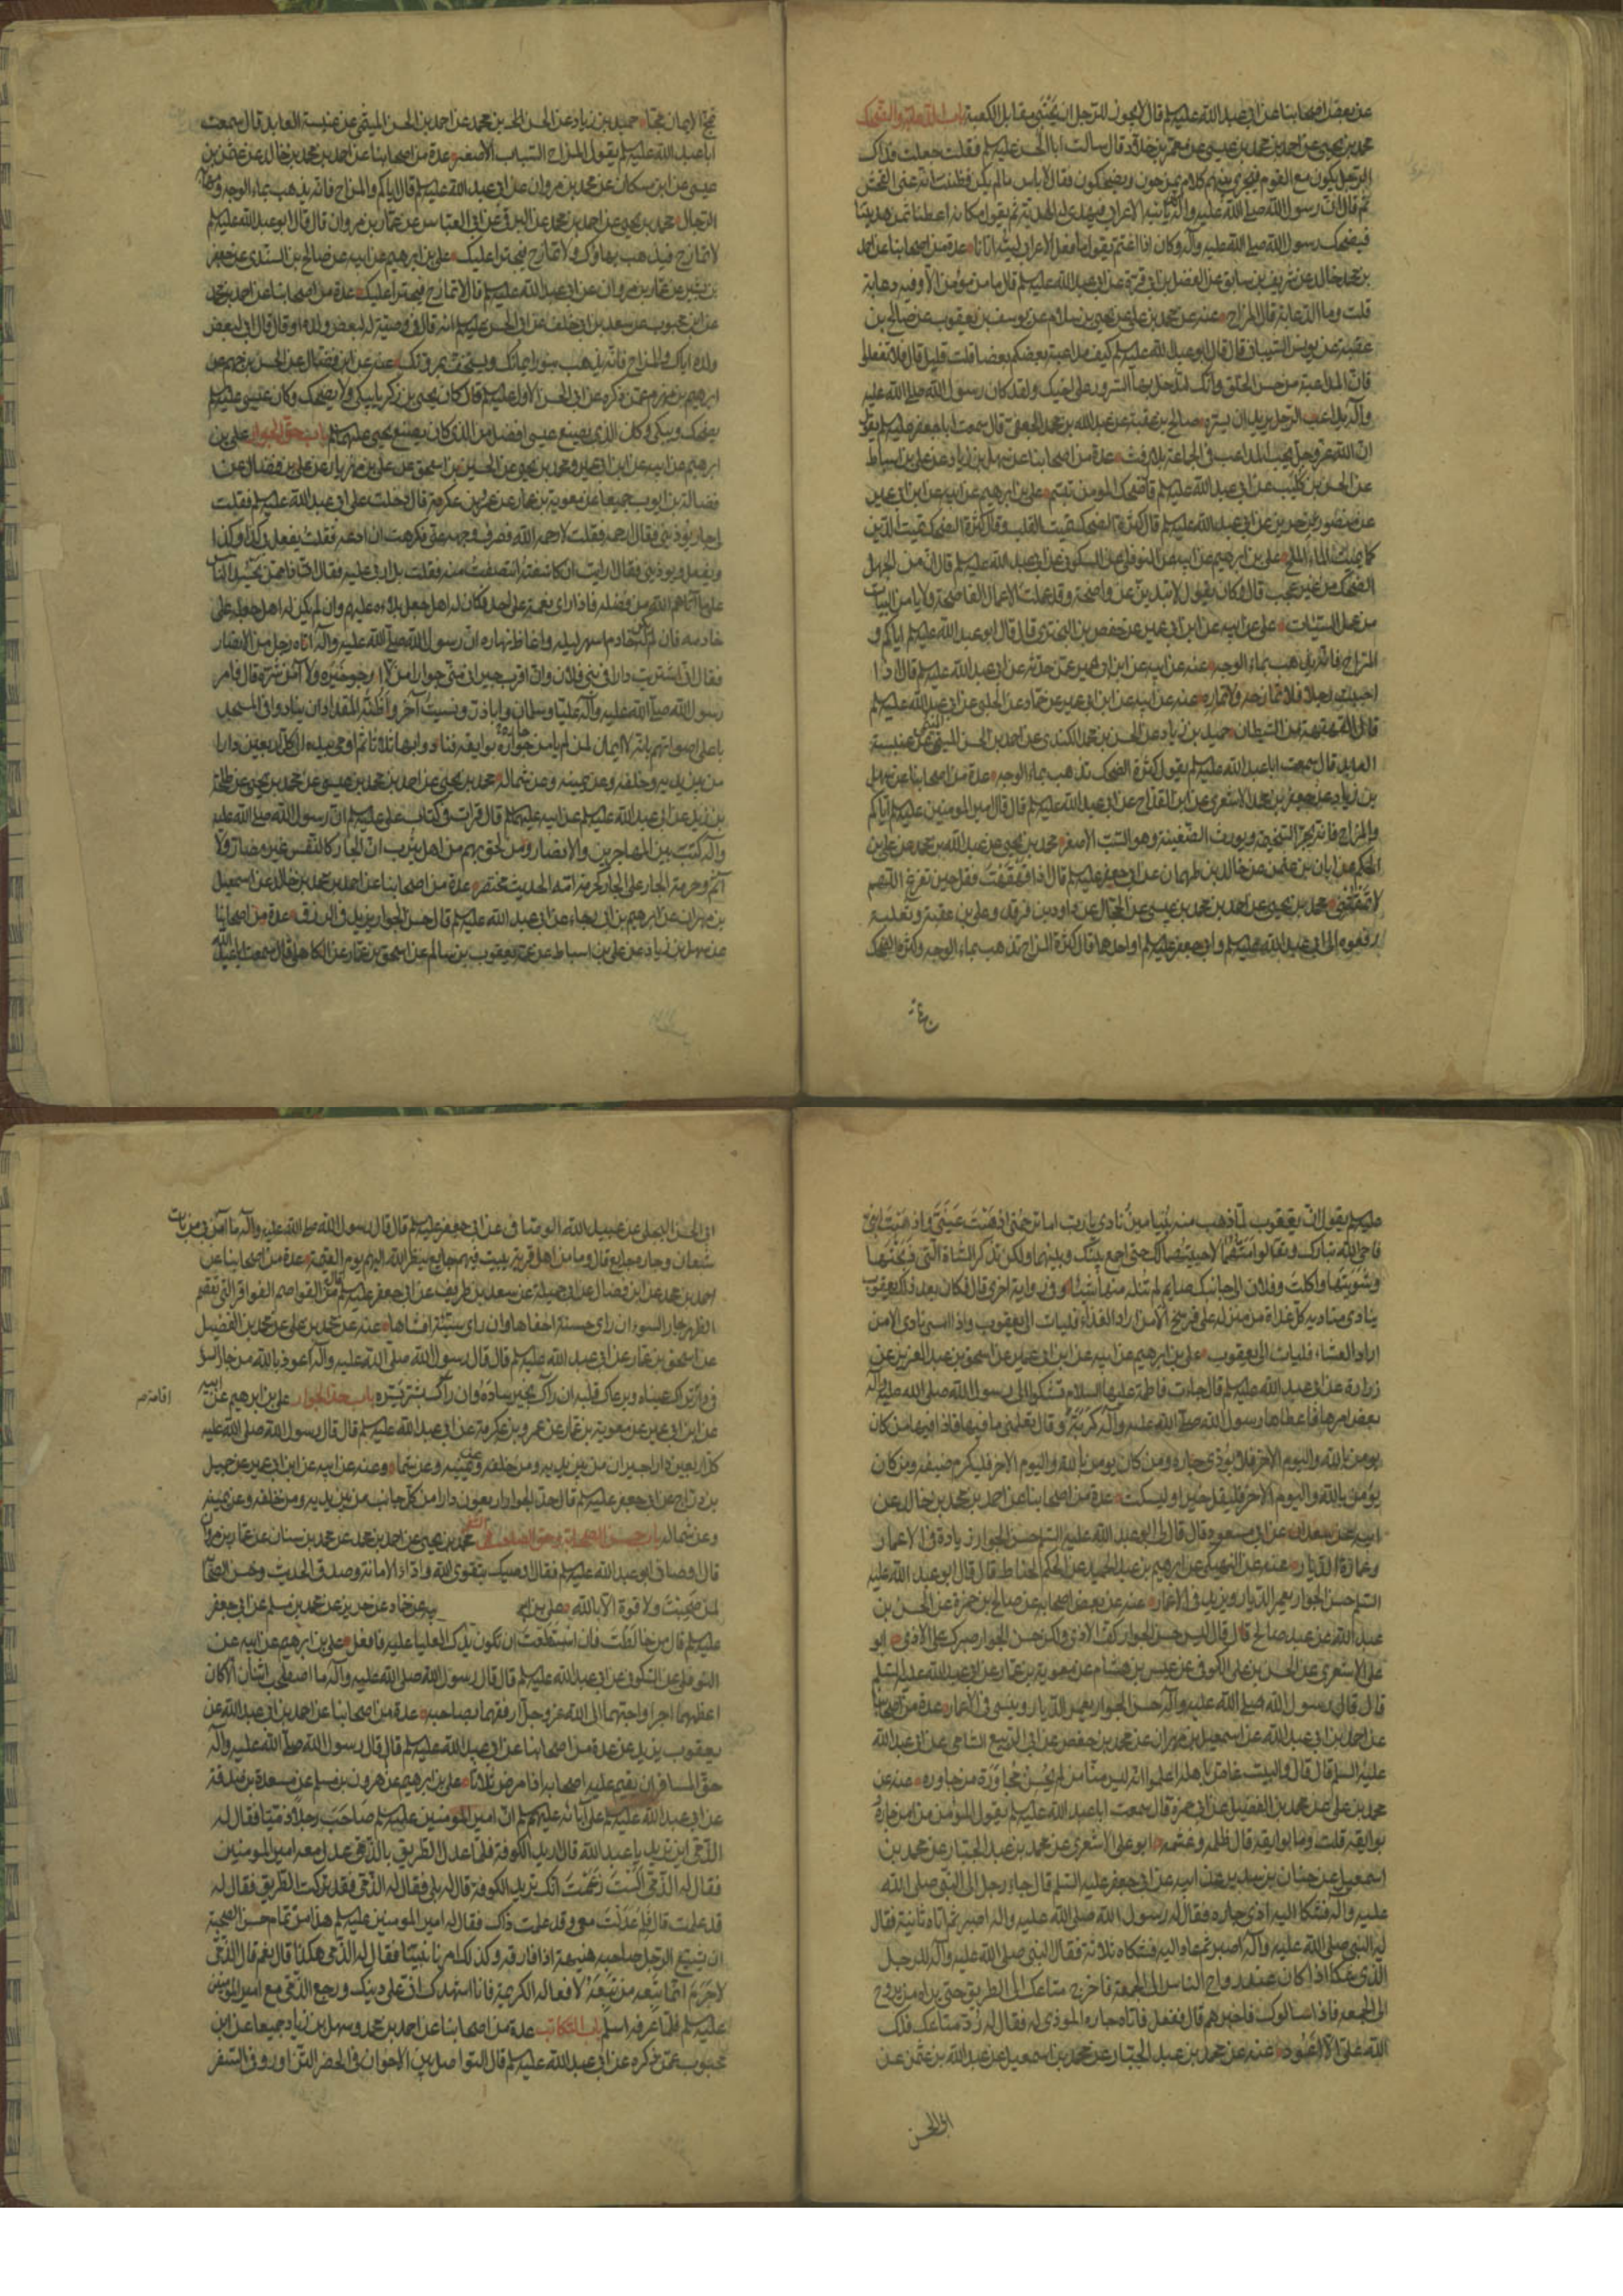 عن بعض اصحابنا عن ابى عبد الله عليه السلم قال لا يجوز للرجل ان يحتبى مقابل الكعبة باب الدعابة والضحك
محمد بن يحيى عن احمد بن محمد بن عيسى عن معمر بن خلاد قال سالت ابا الحسن عليه السلم فقلت جعلت فداك
الرجل يكون مع القوم فيجرى بينهم كلام يمزحون ويضحكون فقال لا باس ما لم يكن فظننت انه عنى الفحش
ثم قال ان رسول الله صلى الله عليه وآله كان ياتيه الاعرابى فيهدى له الهدية ثم يقول مكانه اعطنا ثمن هديتنا
فيضحك رسول الله صلى الله عليه وآله وكان اذا اغتم يقول ما فعل الاعرابى ليته اتانا عدة من اصحابنا عن احمد
بن محمد خالد عن شريف بن سابق عن الفضل بن ابى قرة عن ابى عبد الله عليه السلم قال ما من مؤمن الا وفيه دعابة
قلت وما الدعابة قال المزاح عنه عن محمد بن على عن يحيى بن سلام عن يوسف بن يعقوب عن صالح بن
عقبة عن يونس الشيبانى قال قال ابو عبد الله عليه السلم كيف مداعبة بعضكم بعضا قلت قليل قال فلا تفعلوا
فان المداعبة من حسن الخلق وانك لتدخل بها السرور على اخيك ولقد كان رسول الله صلى الله عليه
وآله يداعب الرجل يريد ان يسره صالح بن عقبة عن عبد الله بن محمد الجعفى قال سمعت ابا جعفر عليه السلم يقول
ان الله عز وجل يحب المداعب فى الجماعة بلا رفث عدة من اصحابنا عن سهل بن زياد عن على بن اسباط
عن الحسن بن كليب عن ابى عبد الله عليه السلم قال ضحك المومن تبسم على بن ابراهيم عن ابيه عن ابن ابى عمير
عن منصور عن حريز عن ابى عبد الله عليه السلم قال كثرة الضحك تميت القلب وقال كثرة الضحك تميث الدين
كما يميث الماء الملح على بن ابراهيم عن ابيه عن النوفلى عن السكونى عن ابى عبد الله عليه السلم قال ان من الجهل
الضحك من غير عجب قال وكان يقول لا تبدين عن واضحة وقد عملت الاعمال الفاضحة ولا يامن البيات
من عمل السيئات على عن ابيه عن ابن ابى عمير عن حفص بن البخترى قال قال ابو عبد الله عليه السلم اياكم و
المزاح فانه يذهب بماء الوجه عنه عن ابيه عن ابن ابى عمير عمن حدثه عن ابى عبد الله عليه السلم قال اذا
احببت رجلا فلا تمازحه ولا تماره عنه عن ابيه عن ابن ابى عمير عن حماد عن الحلبى عن ابى عبد الله عليه السلم
قال القهقهة من الشيطان حميد بن زياد عن الحسن بن محمد الكندى عن احمد بن الحسن الميثمى عن عنبسة
العابد قال سمعت ابا عبد الله عليه السلم يقول كثرة الضحك تذهب بماء الوجه عدة من اصحابنا عن سهل
بن زياد عن جعفر بن محمد الاشعرى عن ابن القداح عن ابى عبد الله عليه السلم قال قال امير المومنين عليه السلم اياكم
والمزاح فانه يجر السخيمة ويورث الضغينة وهو السب الاصغر محمد بن يحيى عن عبد الله بن محمد عن على بن
الحكم عن ابان بن عثمن عن خالد بن طهمان عن ابى جعفر عليه السلم قال اذا قهقهت فقل حين تفرغ اللهم
لا تمقتنى محمد بن يحيى عن احمد بن محمد بن عيسى عن الحجال عن داود بن فرقد وعلى بن عقبة وثعلبة
رفعوه الى ابى عبد الله عليه السلم وابى جعفر عليه السلم او احدهما قال كثرة المزاح تذهب بماء الوجه وكثرة الضحك
تمج الايمان مجا حميد بن زياد عن الحسن بن محمد عن احمد بن الحسن الميثمى عن عنبسة العابد قال سمعت
ابا عبد الله عليه السلم يقول المزاح السباب الاصغر عدة من اصحابنا عن احمد بن محمد بن خالد عن عثمن بن
عيسى عن ابن مسكان عن محمد بن مروان عن ابى عبد الله عليه السلم قال اياكم والمزاح فانه يذهب بماء الوجه ومهابة
الرجال محمد بن يحيى عن احمد بن محمد عن البرقى عن ابى العباس عن عمار بن مروان قال قال ابو عبد الله عليه السلم
لا تمارى فيذهب بهاؤك ولا تمازح فيجترا عليك على بن ابراهيم عن ابيه عن صالح بن السندى عن جعفر
بن بشير عن عمار بن مروان عن ابى عبد الله عليه السلم قال لا تمازح فيجترا عليك عدة من اصحابنا عن احمد بن محمد
عن ابن محبوب عن سعد بن ابى خلف عن ابى الحسن عليه السلم انه قال فى وصيته له لبعض ولده او قال قال ابى لبعض
ولده اياك والمزاح فانه يذهب بنور ايمانك ويستخف بمروتك عنه عن ابن فضال عن الحسن بن جهم عن
ابرهيم بن مهزم عمن ذكره عن ابى الحسن الاول عليه السلم قال كان يحيى بن زكريا يبكى ولا يضحك وكان عيسى عليه السلم
يضحك ويبكى وكان الذى يصنع عيسى افضل من الذى كان يصنع يحيى عليهما السلم باب حق الجوار على بن
ابرهيم عن ابيه عن ابن ابى عمير ومحمد بن يحيى عن الحسين بن اسحق عن على بن مهزيار عن على بن فضال عن
فضالة بن ايوب جميعا عن معوية بن عمار عن عمرو بن عكرمة قال دخلت على ابى عبد الله عليه السلم فقلت
لى جار يؤذينى فقال ارحمه فقلت لا رحمه الله فصرف وجهه عنى فكرهت ان ادعه فقلت يفعل بى كذا وكذا
ويفعل ويوذينى فقال ارايت ان كاشفته انتصفت منه فقلت بل اربى عليه فقال ان ذا ممن يحسد الناس
على ما آتاهم الله من فضله فاذا راى نعمة على احد فكان له اهل جعل بلاءه عليهم وان لم يكن له اهل جعله على
خادمه فان لم يكن له خادم اسهر ليله واغاظ نهاره ان رسول الله صلى الله عليه وآله اتاه رجل من الانصار
فقال انى اشتريت دارا فى بنى فلان وان اقرب جيرانى منى جوارا من لا ارجو خيره ولا آمن شره قال فامر
رسول الله صلى الله عليه وآله عليا وسلمان وابا ذر ونسيت آخر واظنه المقداد ان ينادوا فى المسجد
باعلى اصواتهم بانه لا ايمان لمن لم يامن جاره بوايقه فنادوا بها ثلاثا ثم اومى بيده الى كل اربعين دارا
من بين يديه وخلفه وعن يمينه وعن شماله محمد بن يحيى عن احمد بن محمد بن عيسى عن محمد بن يحيى عن طلحة
بن زيد عن ابى عبد الله عليه السلم عن ابيه عليهما السلم قال قرات فى كتاب على عليه السلم ان رسول الله صلى الله عليه
وآله كتب بين المهاجرين والانصار ومن لحق بهم من اهل يثرب ان الجار كالنفس غير مضار ولا
آثم وحرمة الجار على الجار كحرمة امه الحديث مختصر عدة من اصحابنا عن احمد بن محمد بن خالد عن اسمعيل
بن مهران عن ابرهيم بن ابى رجاء عن ابى عبد الله عليه السلم قال حسن الجوار يزيد فى الرزق عدة من اصحابنا
عن سهل بن زياد عن على بن اسباط عن عمه يعقوب بن سالم عن اسحق بن عمار عن الكاهلى قال سمعت ابا عبد الله
عليه السلم يقول ان يعقوب لما ذهب منه بنيامين نادى يا رب اما ترحمنى اذهبت عينى واذهبت ابنى
فاوحى الله تبارك وتعالى لو امتهما لاحييتهما لك حتى اجمع بينك وبينهما ولكن تذكر الشاة التى ذبحتها
وشويتها واكلت وفلان الى جانبك صايم لم تنله منها شيئا وفى رواية اخرى قال فكان بعد ذلك يعقوب
ينادى مناديه كل غداة من منزله على فرسخ الا من اراد الغداء فليات الى يعقوب واذا امسى نادى الا من
اراد العشاء فليات الى يعقوب على بن ابرهيم عن ابيه عن ابن ابى عمير عن اسحق بن عبد العزيز عن
زرارة عن ابى عبد الله عليه السلم قال جاءت فاطمة عليها السلام تشكوا الى رسول الله صلى الله عليه وآله
بعض امرها فاعطاها رسول الله صلى الله عليه وآله كربة وقال تعلمى ما فيها فاذا فيها من كان
يومن بالله واليوم الاخر فلا يؤذى جاره ومن كان يومن بالله واليوم الاخر فليكرم ضيفه ومن كان
يؤمن بالله واليوم الاخر فليقل خيرا او ليسكت عدة من اصحابنا عن احمد بن محمد بن خالد عن
ابيه عن سعدان عن ابى مسعود قال قال لى ابو عبد الله عليه السلم حسن الجوار زيادة فى الاعمار
وعمارة الديار عنه عن النهيكى عن ابرهيم بن عبد الحميد عن الحكم الخياط قال قال ابو عبد الله عليه
السلم حسن الجوار يعمر الديار ويزيد فى الاعمار عنه عن بعض اصحابه عن صالح بن حمزة عن الحسن بن
عبد الله عن عبد صالح قال قال ليس حسن الجوار كف الاذى ولكن حسن الجوار صبرك على الاذى ابو
على الاشعرى عن الحسن بن على الكوفى عن عبيس بن هشام عن معوية بن عمار عن ابى عبد الله عليه السلم
قال قال رسول الله صلى الله عليه وآله حسن الجوار يعمر الديار وينسى فى الاعمار عدة من اصحابنا
عن احمد بن ابى عبد الله عن اسمعيل بن مهران عن محمد بن حفص عن ابى الربيع الشامى عن ابى عبد الله
عليه السلم قال قال والبيت غاص باهله اعلموا انه ليس منا من لم يحسن مجاورة من جاوره عنه عن
محمد بن على عن محمد بن الفضيل عن ابى حمزة قال سمعت ابا عبد الله عليه السلم يقول المؤمن من امن جاره
بوايقه قلت وما بوايقه قال ظلمه وغشمه ابو على الاشعرى عن محمد بن عبد الجبار عن محمد بن
اسمعيل عن حنان بن سدير عن ابيه عن ابى جعفر عليه السلم قال جاء رجل الى النبى صلى الله
عليه وآله فشكا اليه اذى جاره فقال له رسول الله صلى الله عليه وآله اصبر ثم اتاه ثانية فقال
له النبى صلى الله عليه وآله اصبر ثم عاد اليه فشكاه ثلاثة فقال النبى صلى الله عليه وآله للرجل
الذى شكا اذا كان عند رواح الناس الى الجمعة فاخرج متاعك الى الطريق حتى يراه من يروح
الى الجمعه فاذا سالوك فاخبرهم قال ففعل فاتاه جاره الموذى له فقال له رد متاعك فلك
الله على الا اعود عنه عن محمد بن عبد الجبار عن محمد بن اسمعيل عن عبد الله بن عثمن عن
ابى الحسن
ابى الحسن البجلى عن عبيد الله الوصافى عن ابى جعفر عليه السلم قال قال رسول الله صلى الله عليه وآله ما آمن بى من بات
شبعان وجاره جايع قال وما من اهل قرية يبيت فيهم جايع ينظر الله اليهم يوم القيمة عدة من اصحابنا عن
احمد بن محمد عن ابن فضال عن ابى جميلة عن سعد بن طريف عن ابى جعفر عليه السلم قال من القواصم الفواقر التى تقصم
الظهر جار السوء ان راى حسنة اخفاها وان راى سيئة افشاها عنه عن محمد بن على عن محمد بن الفضيل
عن اسحق بن عمار عن ابى عبد الله عليه السلم قال قال رسول الله صلى الله عليه وآله اعوذ بالله من جار السوء
فى دار تراك عيناه ويرعاك قلبه ان رآك بخير ساءه وان رآك بشر سره باب حد الجوار على بن ابرهيم عن ابيه
اقامة
عن ابن ابى عمير عن معوية بن عمار عن عمرو بن عكرمة عن ابى عبد الله عليه السلم قال قال رسول الله صلى الله عليه
كل اربعين دارا جيران من بين يديه ومن خلفه وعن يمينه وعن شماله وعنه عن ابيه عن ابن ابى عمير عن جميل
بن دراج عن ابى جعفر عليه السلم قال حد الجوار اربعون دارا من كل جانب من بين يديه ومن خلفه وعن يمينه
وعن شماله باب حسن الصحابة وحق الصاحب فى السفر محمد بن يحيى عن احمد بن محمد عن محمد بن سنان عن عمار بن مروان
قال اوصانى ابو عبد الله عليه السلم فقال اوصيك بتقوى الله واداء الامانة وصدق الحديث وحسن الصحابة
لمن صحبت ولا قوة الا بالله على بن ابر يه عن حماد عن حريز عن محمد بن مسلم عن ابى جعفر
عليه السلم قال من خالطت فان استطعت ان تكون يدك العليا عليه فافعل على بن ابرهيم عن ابيه عن
النوفلى عن السكونى عن ابى عبد الله عليه السلم قال قال رسول الله صلى الله عليه وآله ما اصطحب اثنان الا كان
اعظمهما اجرا واحبهما الى الله عز وجل ارفقهما بصاحبه عدة من اصحابنا عن احمد بن ابى عبد الله عن
يعقوب بن يزيد عن عدة من اصحابنا عن ابى عبد الله عليه السلم قال قال رسول الله صلى الله عليه وآله
حق المسافر ان يقيم عليه اصحابه اذا مرض ثلاثا على بن ابراهيم عن هرون بن مسلم عن مسعدة بن صدقة
عن ابى عبد الله عليه السلم عن آبائه عليهم السلم ان امير المومنين عليه السلم صاحب رجلا ذميا فقال له
الذمى اين تريد يا عبد الله قال اريد الكوفة فلما عدل الطريق بالذمى عدل معه امير المومنين
فقال له الذمى الست زعمت انك تريد الكوفة قال له بلى فقال له الذمى فقد تركت الطريق فقال له
قد علمت قال فلم عدلت معى وقد علمت ذاك فقال له امير المومنين عليه السلم هذا من تمام حسن الصحبة
ان يشيع الرجل صاحبه هنيهة اذا فارقه وكذلك امرنا نبينا فقال له الذمى هكذا قال نعم قال الذمى
لا جرم انما تبعه من تبعه لافعاله الكريمة فانا اشهدك انى على دينك ورجع الذمى مع امير المومنين
عليه السلم فلما عرفه اسلم باب التكاتب عدة من اصحابنا عن احمد بن محمد وسهل بن زياد جميعا عن ابن
محبوب عمن ذكره عن ابى عبد الله عليه السلم قال التواصل بين الاخوان فى الحضر التزاور وفى السفر